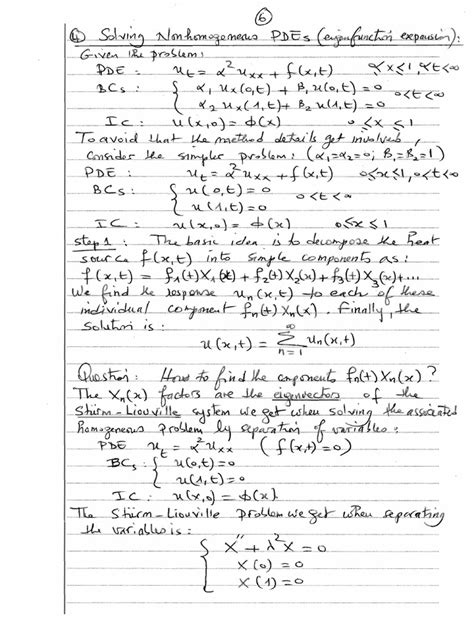 ⑥
④ Solving Nonhomogeneous PDEs (eigenfunction expansion):
Given the problem:
PDE: u_t = α² u_xx + f(x,t) 0<x<1, 0<t<∞
BCs: { α₁ u_x(0,t) + β₁ u(0,t) = 0
α₂ u_x(1,t) + β₂ u(1,t) = 0 0<t<∞
IC: u(x,0) = ϕ(x) 0≤x≤1
To avoid that the method details get involved,
consider the simpler problem: (α₁=α₂=0; β₁=β₂=1)
PDE: u_t = α² u_xx + f(x,t) 0≤x≤1, 0<t<∞
BCs: { u(0,t) = 0
u(1,t) = 0 0<t<∞
IC: u(x,0) = ϕ(x) 0≤x≤1
step 1: The basic idea is to decompose the heat
source f(x,t) into simple components as:
f(x,t) = f₁(t)X₁(x) + f₂(t)X₂(x) + f₃(t)X₃(x)+...
We find the response u_n(x,t) to each of these
individual component f_n(t) X_n(x). Finally, the
solution is:
u(x,t) = ∞ Σ n=1 u_n(x,t)
Question: How to find the components f_n(t) X_n(x)?
The X_n(x) factors are the eigenvectors of the
Stürm-Liouville system we get when solving the associated
homogeneous problem by separation of variables:
PDE u_t = α² u_xx (f(x,t)=0)
BCs: { u(0,t)=0
u(1,t)=0
IC: u(x,0) = ϕ(x)
The Stürm-Liouville problem we get when separating
the variables is:
{ X'' + λ² X = 0
X(0) = 0
X(1) = 0